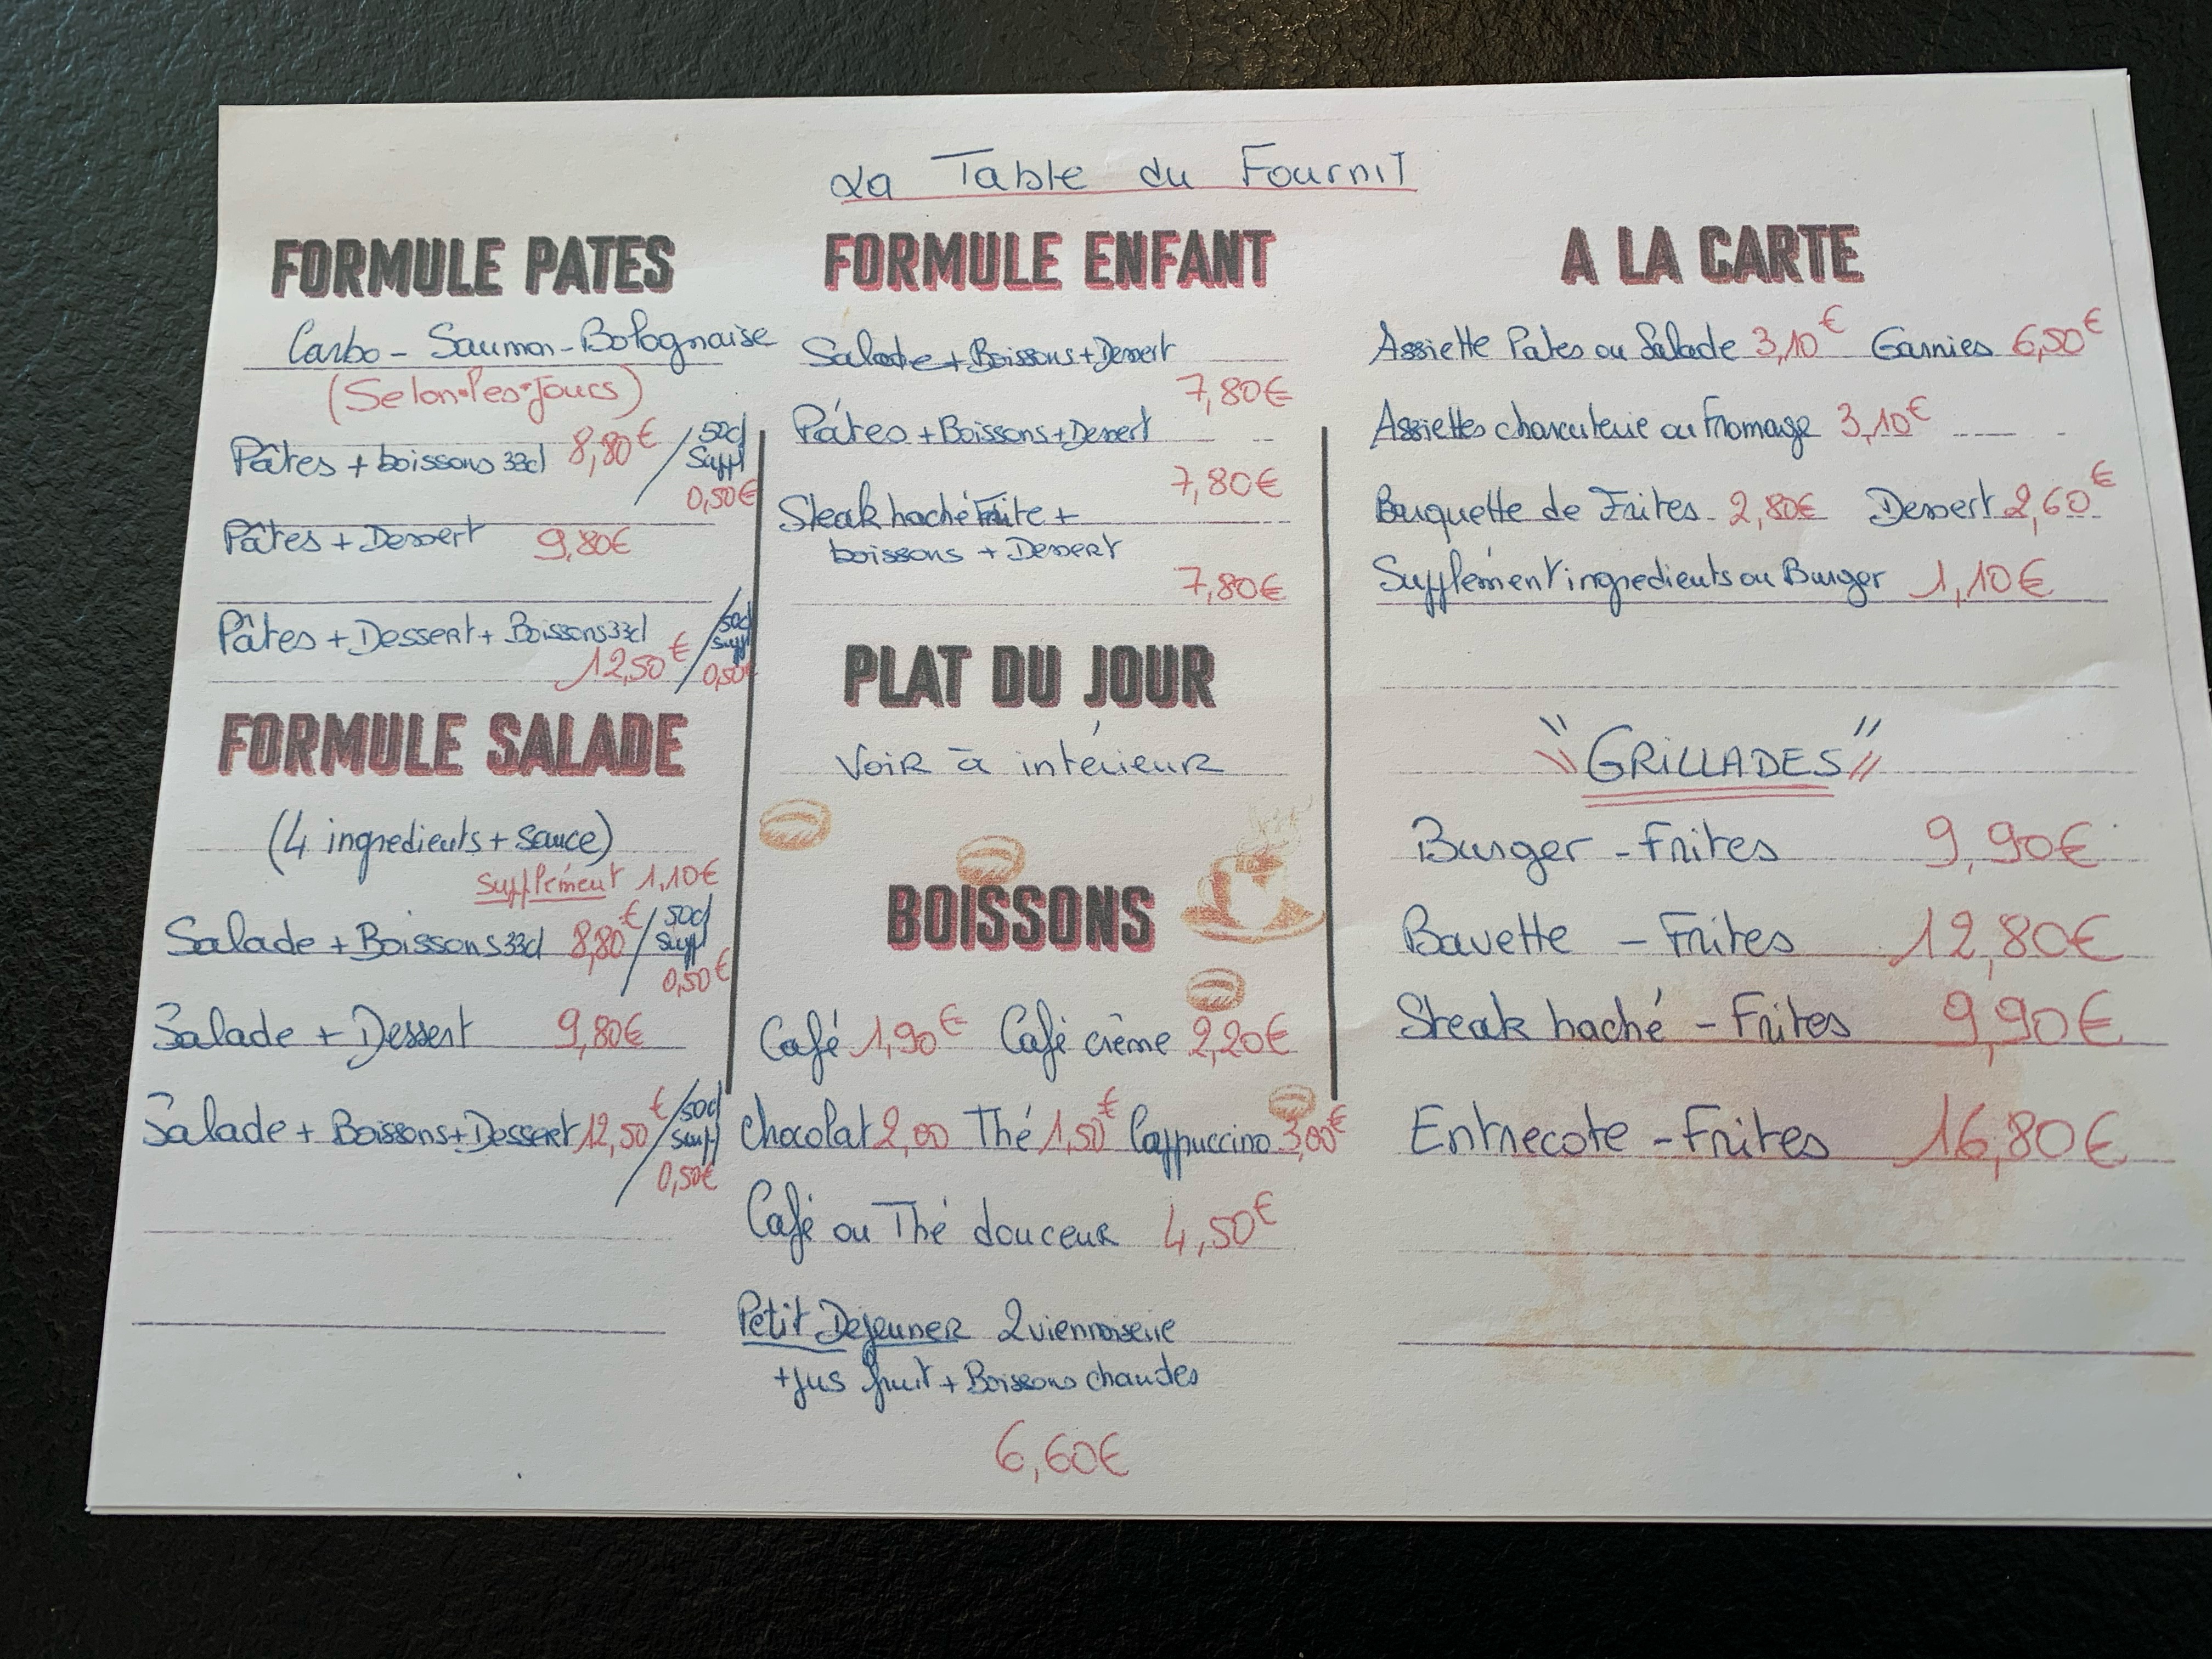 La Table du Fournil
FORMULE PATES
Carbo - Saumon - Bolognaise
(Selon les jours)
Pâtes + boissons 33cl 8,80€ / 50cl suppl 0,50€
Pâtes + Dessert 9,80€
Pâtes + Dessert + Boissons 33cl
12,50€ / 50cl suppl 0,50€
FORMULE SALADE
(4 ingredients + sauce)
supplément 1,10€
Salade + Boissons 33cl 8,80€ / 50cl suppl 0,50€
Salade + Dessert 9,80€
Salade + Boissons + Dessert 12,50€ / 50cl suppl 0,50€
FORMULE ENFANT
Salade + Boissons + Dessert
7,80€
Pâtes + Boissons + Dessert
7,80€
Steak haché Frite +
boissons + Dessert
7,80€
PLAT DU JOUR
Voir à intérieur
BOISSONS
Café 1,90€ Café crème 2,20€
Chocolat 2,00 Thé 1,50€ Cappuccino 3,00€
Café ou Thé douceur 4,50€
Petit Dejeuner 2 viennoiserie
+ jus fruit + Boissons chaudes
6,60€
A LA CARTE
Assiette Pates ou Salade 3,10€ Garnies 6,50€
Assiettes charcuterie ou fromage 3,10€
Barquette de Frites 2,80€ Dessert 2,60€
Supplément ingredients ou Burger 1,10€
"GRILLADES"
Burger - Frites 9,90€
Bavette - Frites 12,80€
Steak haché - Frites 9,90€
Entrecote - Frites 16,80€